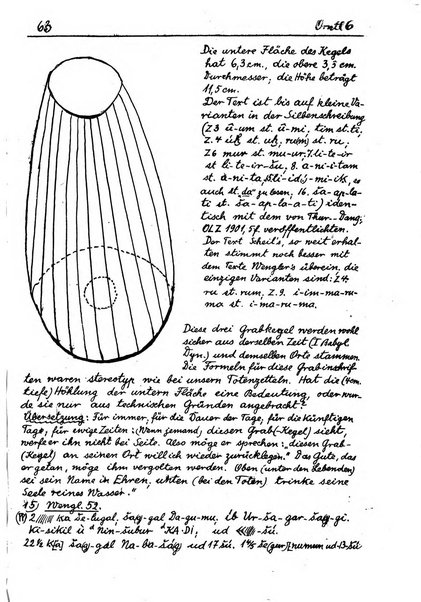 63
Orntl 6
Die untere Fläche des Kegels
hat 6,3 cm., die obere 3,3 cm.
Durchmesser; die Höhe beträgt
11,5 cm.
Der Text ist bis auf kleine Va-
rianten in der Silbenschreibung
(Z 3 û-um st. û-mi, tim st. ti,
Z. 4 úḫ st. uḫ, rum) st. ru,
Z 6 mur st. mu-ur, 7. li-te-ir
st li-te-ir-šu, 8. a-ni-tam
st. a-ni-ta,
auch st. "da" zu lesen, 16. ša-ap-la-
ti st. ša-ap-la-a-ti) iden-
tisch mit dem von Thur.-Dang,
OLZ 1901, 5f. veröffentlichten.
Der Text Scheil's, so weit erhal-
ten stimmt noch besser mit
dem Texte Wengler's überein, die
einzigen Varianten sind: Z. 4
ru st. rum, Z. 9. i-im-ma-ru-
ma st. i-ma-ru-ma.
Diese drei Grabkegel werden wohl
sicher aus derselben Zeit (I Babyl.
Dyn.) und demselben Orte stammen.
Die Formeln für diese Grabinschrif-
ten waren stereotyp wie bei unsern Totenzetteln. Hat die (4cm.
tiefe) Höhlung der untern Fläche eine Bedeutung, oder wur-
de sie nur aus technischen Gründen angebracht?
Übersetzung: Für immer, für die Dauer der Tage, für die künftigen
Tage, für ewige Zeiten: (Wenn jemand, diesen Grab(-Kegel) sieht,
werfe er ihn nicht bei Seite. Also möge er sprechen: "diesen Grab-
(Kegel) an seinen Ort will ich wieder zurücklegen." Das Gute, das
er getan, möge ihm vergolten werden. Oben (unter den Lebenden)
sei sein Name in Ehren, unten (bei den Toten) trinke seine
Seele reines Wasser."
15) Wengl. 52.
2 KA še-lugal, šagg-gal Da-gu-mu, ib Ur-šа-gar-šagg-gi.
Ki-sikil ù ᵈNin-šubur ᵈKA-DI, ud šú.
22½ Ka šagg-gal Na-ba-šagg ud 17 šú.